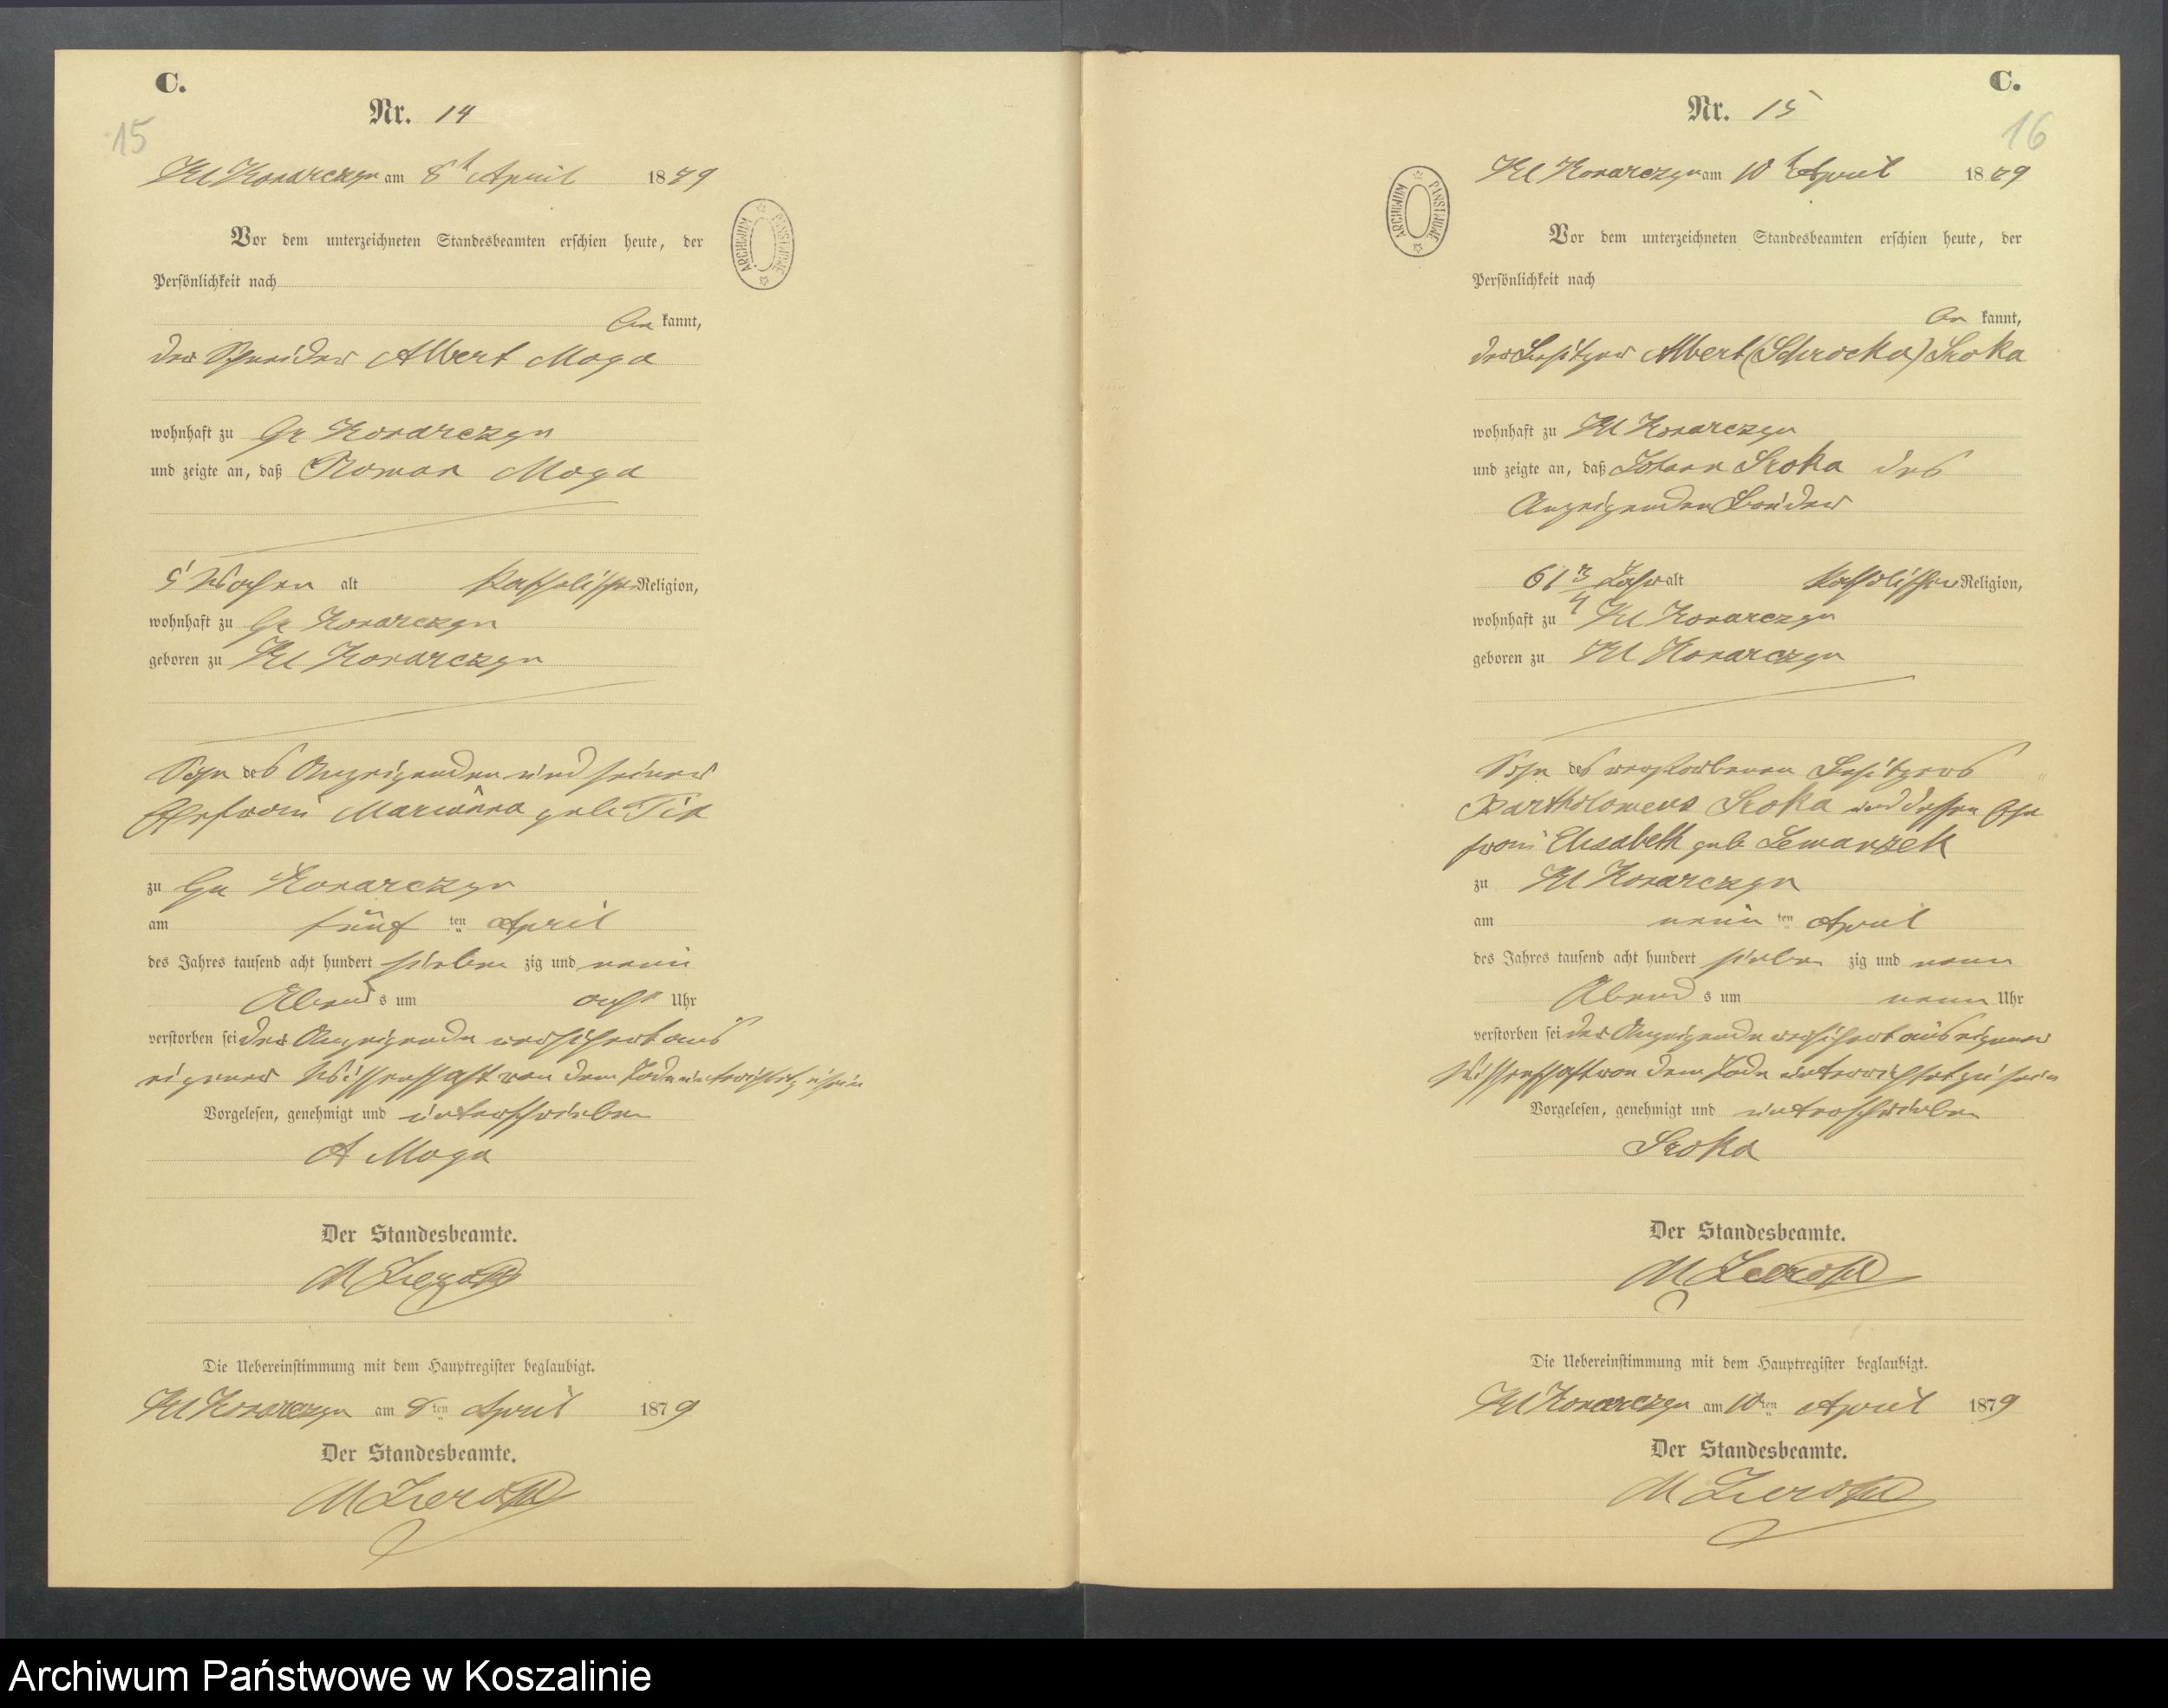 C.
15
Nr. 14
Kl Konarczyn am 8t April 1879
ARCHIWUM PAŃSTWOWE
Vor dem unterzeichneten Standesbeamten erschien heute, der
Persönlichkeit nach
be kannt,
der Schneider Albert Moga
wohnhaft zu Gr Konarczyn
und zeigte an, daß Roman Moga
5 Wochen alt katholischer Religion,
wohnhaft zu Gr Konarczyn
geboren zu Kl Konarczyn
Sohn des Anzeigenden und seiner
Ehefrau Marianna geb
zu Gr Konarczyn
am fünf ten April
des Jahres tausend acht hundert sieben zig und neun
Abend s um acht Uhr
verstorben sei der Anzeigende versichert aus
eigener Wissenschaft von dem Tode unterrichtet z sein
Vorgelesen, genehmigt und unterschrieben
A Moga
Der Standesbeamte.
M
Die Uebereinstimmung mit dem Hauptregister beglaubigt.
Kl Konarczyn am 8ten April 1879
Der Standesbeamte.
M
C.
16
Nr. 15
Kl Konarczyn am 10t April 1879
ARCHIWUM PAŃSTWOWE
Vor dem unterzeichneten Standesbeamten erschien heute, der
Persönlichkeit nach
be kannt,
der Besitzer Albert (Schrocka) Sroka
wohnhaft zu Kl Konarczyn
und zeigte an, daß Johann Sroka des
Anzeigenden Bruder
61 3/4 Jahr alt katholischer Religion,
wohnhaft zu Kl Konarczyn
geboren zu Kl Konarczyn
Sohn des verstorbenen Besitzers
Bartholomeus Sroka und dessen Ehe
frau Elisabeth geb Lewanzek
zu Kl Konarczyn
am neun ten April
des Jahres tausend acht hundert sieben zig und neun
Abend s um neun Uhr
verstorben sei der Anzeigende versichert aus eigener
Wissenschaft von dem Tode unterrichtet zu sein
Vorgelesen, genehmigt und unterschrieben
Sroka
Der Standesbeamte.
M
Die Uebereinstimmung mit dem Hauptregister beglaubigt.
Kl Konarczyn am 10ten April 1879
Der Standesbeamte.
M
Archiwum Państwowe w Koszalinie